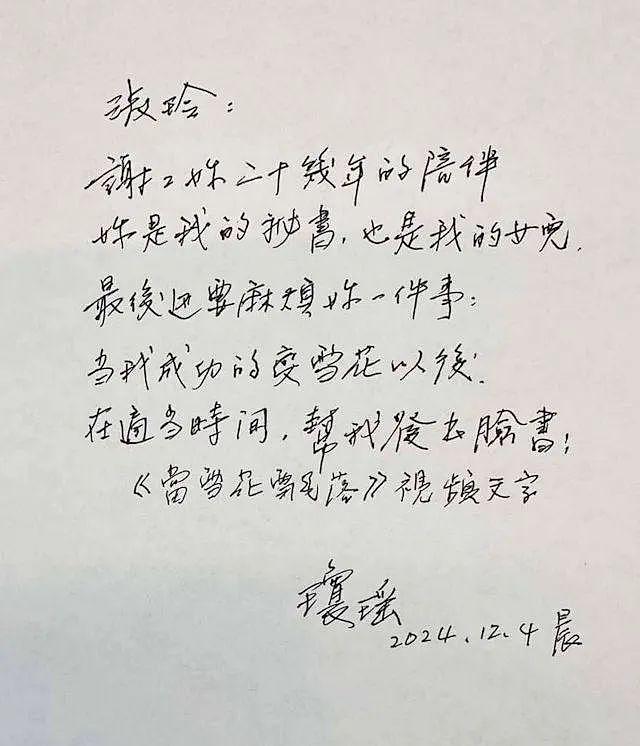 淑玲：
謝謝妳二十幾年的陪伴
妳是我的秘書，也是我的女兒．
最後还要麻煩妳一件事：
当我成功的变雪花以後．
在適当時间，幫我發出臉書；
《當雪花飄落》視頻文字
瓊瑤
2024.12.4晨